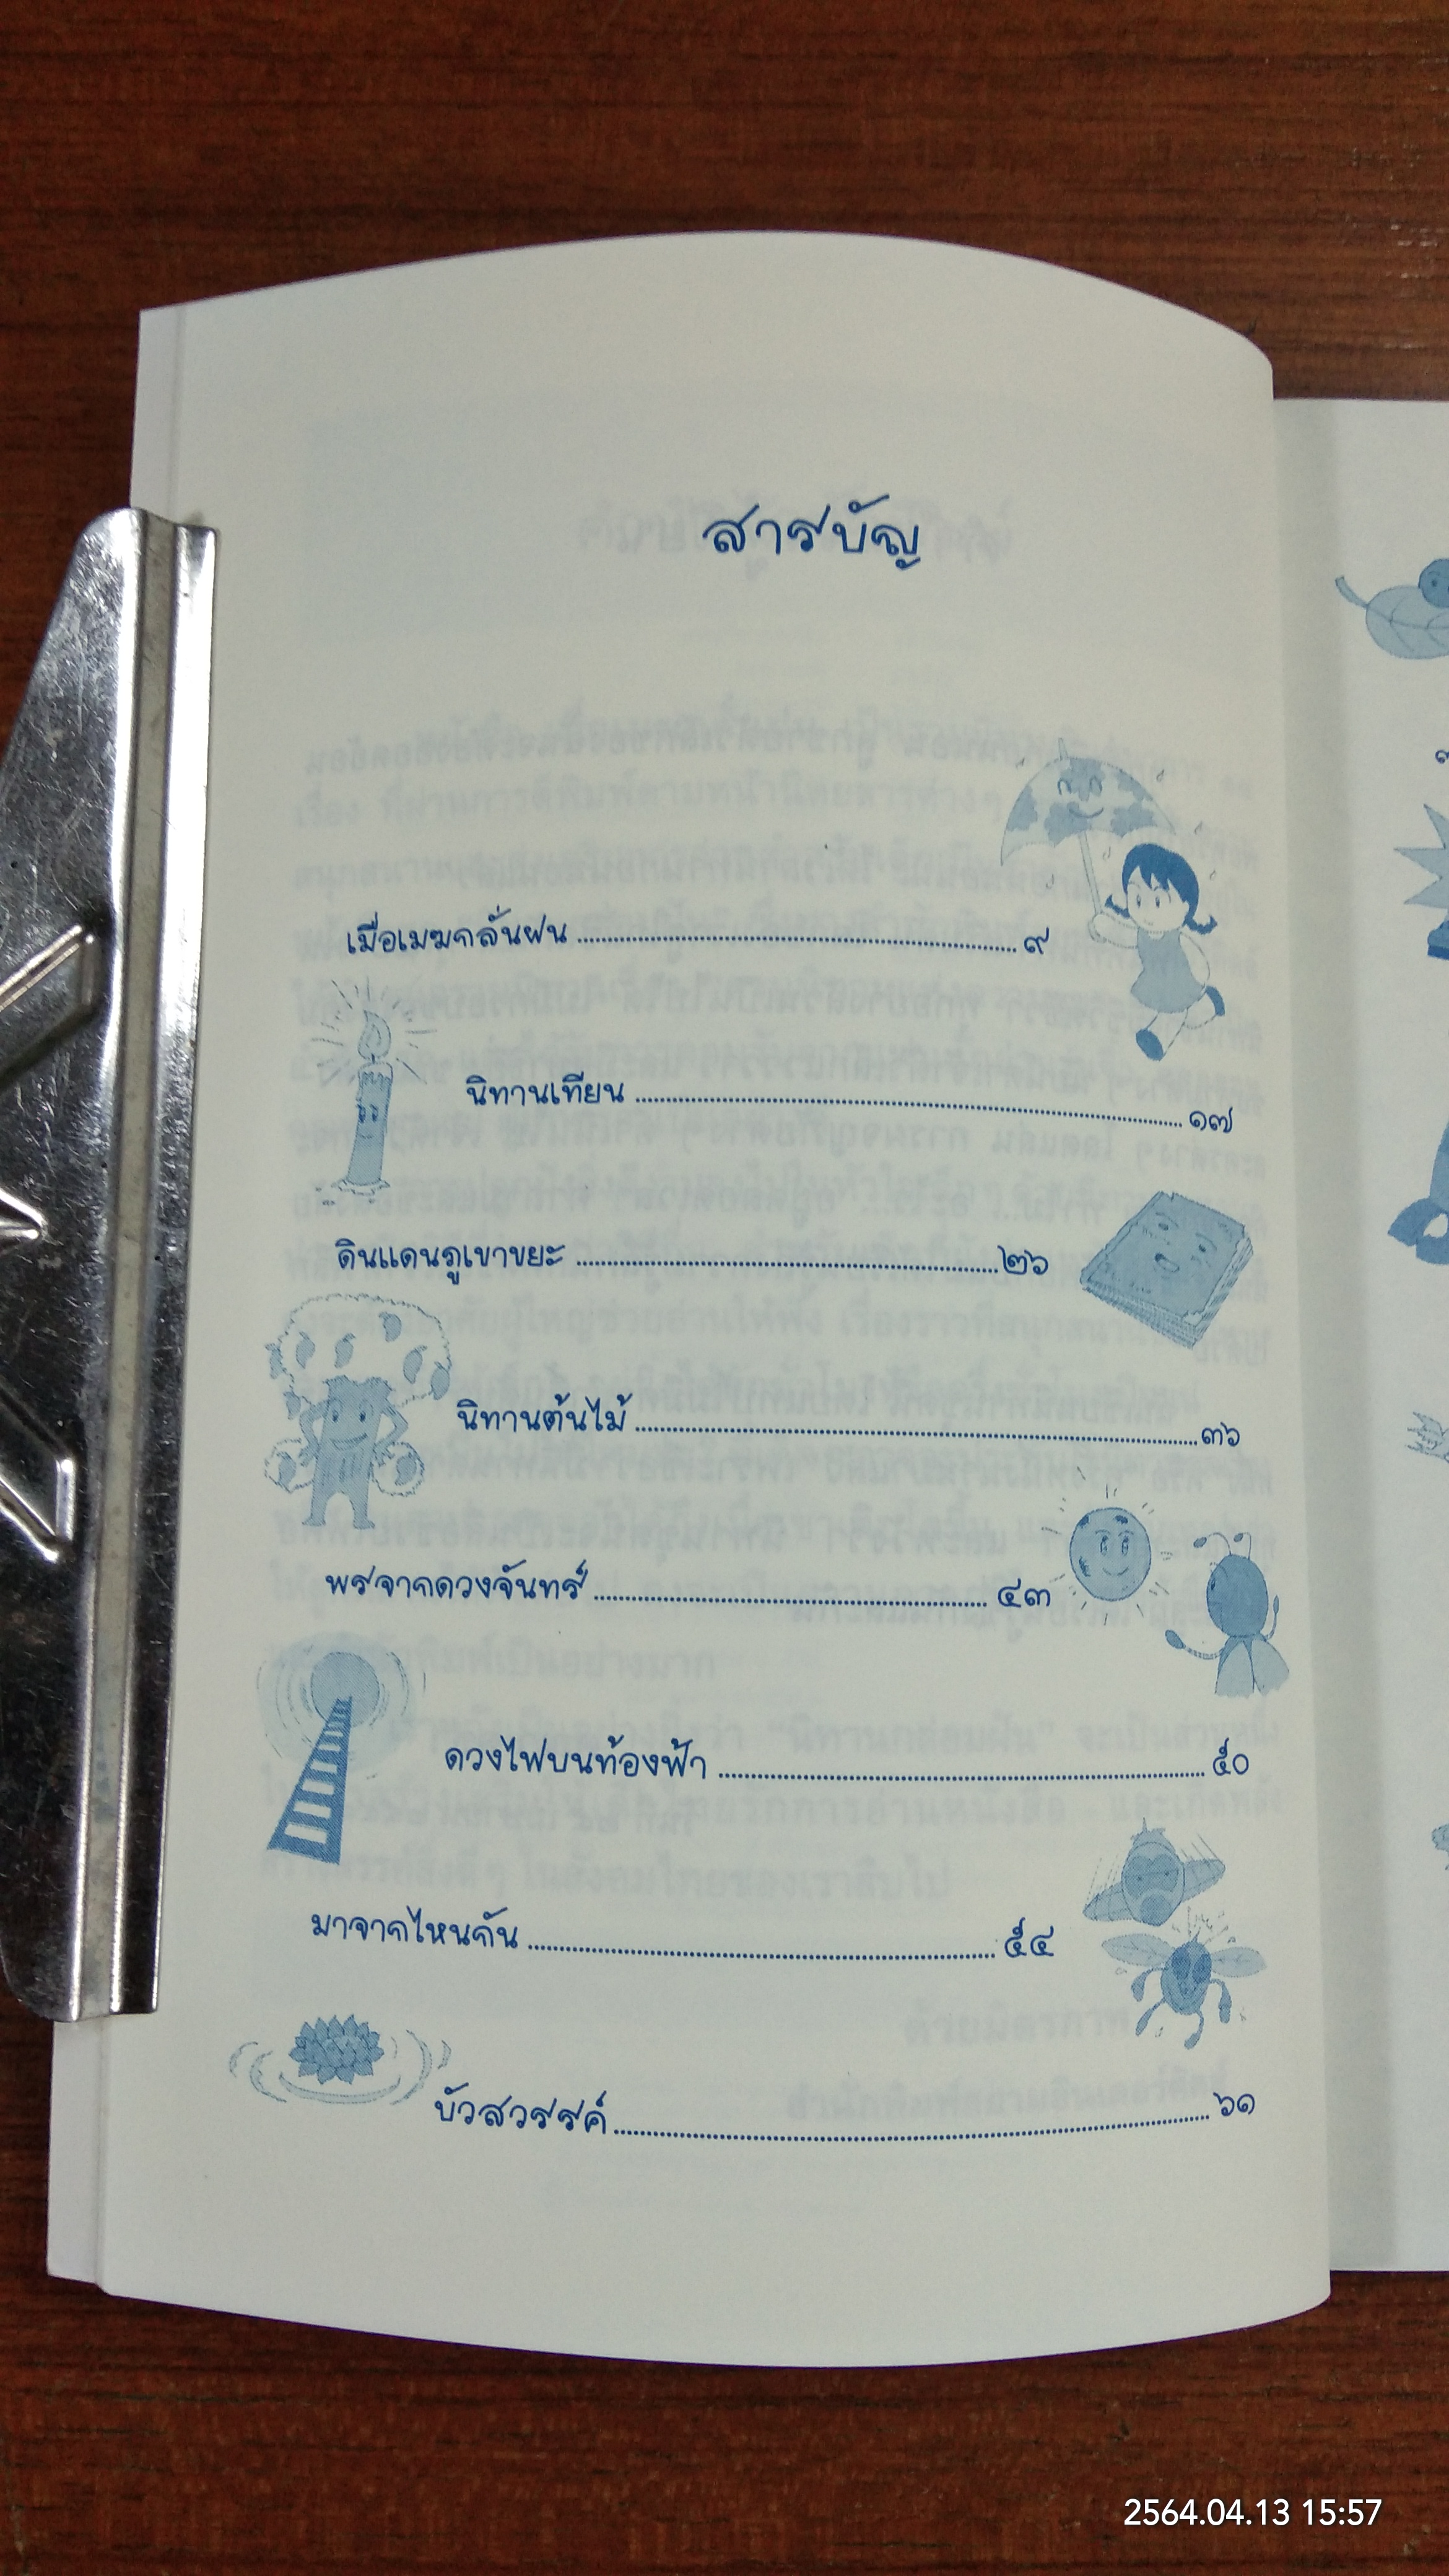 สารบัญ
เมื่อเมฆกลั่นฝน ๙
นิทานเทียน ๑๗
ดินแดนภูเขาขยะ ๒๖
นิทานต้นไม้ ๓๖
พรจากดวงจันทร์ ๔๓
ดวงไฟบนท้องฟ้า ๕๐
มาจากไหนกัน ๕๔
บัวสวรรค์ ๖๑
2564.04.13 15:57